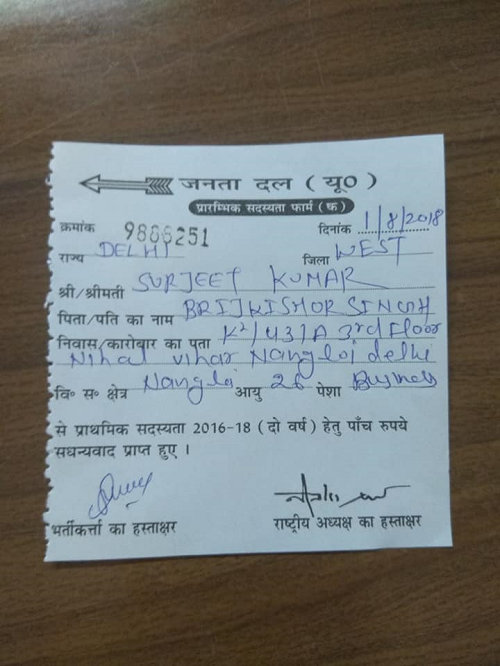 जनता दल ( यू० )
प्रारम्भिक सदस्यता फार्म ( क )
क्रमांक 9866251 दिनांक 1/8/2018
राज्य DELHI जिला WEST
श्री/श्रीमती SURJEET KUMAR
पिता/पति का नाम BRIJKISHOR SINGH
निवास/कारोबार का पता K2/431A 3rd Floor
Nihal vihar Nangloi delhi
वि० स० क्षेत्र Nangloi आयु 26 पेशा Business
से प्राथमिक सदस्यता 2016-18 ( दो वर्ष ) हेतु पाँच रुपये
सधन्यवाद प्राप्त हुए ।
भर्तीकर्त्ता का हस्ताक्षर राष्ट्रीय अध्यक्ष का हस्ताक्षर